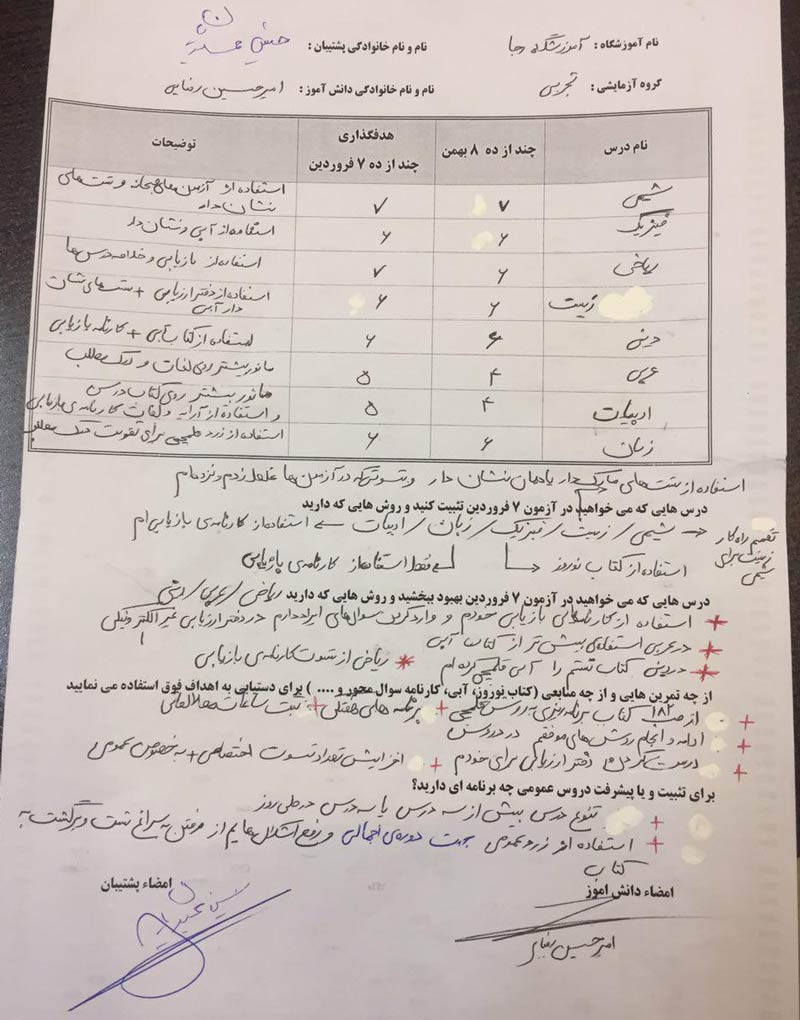 نام آموزشگاه : آموزشگاه رجا نام و نام خانوادگی پشتیبان :
گروه آزمایشی : تجربی نام و نام خانوادگی دانش آموز : امیرحسین رضایی
نام درس چند از ده ۸ بهمن هدفگذاری چند از ده ۷ فروردین توضیحات
شیمی ۷ ۷ استفاده از آزمون های و تست های نشان دار
فیزیک ۶ ۶ استفاده از آبی و نشان دار
ریاضی ۶ ۷ استفاده از بازیابی و خلاصه درس ها
زیست ۶ ۶ استفاده از دفتر ارزیابی + تست های نشان دار آبی
دینی ۶ ۶ استفاده از کتاب آبی + کارنامه بازیابی
عربی ۴ ۵ مانور بیشتر روی لغات و درک مطلب
ادبیات ۴ ۵ مانور بیشتر روی کتاب درسی و استفاده از آرایه و لغات کارنامه ی بازیابی
زبان ۶ ۶ استفاده از زرد قلمچی برای تقویت درک مطلب
استفاده از تست های مارک دار یا همان نشان دار و تستو ترکه در آزمون ها غلط زدم و نزده ام
درس هایی که می خواهید در آزمون ۷ فروردین تثبیت کنید و روش هایی که دارید
شیمی / زیست / فیزیک / زبان / ادبیات استفاده از کارنامه ی بازیابی ام
تعمیم راه کار زیست برای شیمی
استفاده از کتاب نوروز فقط استفاده از کارنامه ی بازیابی
درس هایی که می خواهید در آزمون ۷ فروردین بهبود ببخشید و روش هایی که دارید ریاضی / عربی / دینی
استفاده از کارنامه های بازیابی خودم و وارد کردن سوال های ایراد دارم در دفتر ارزیابی غیر الکترونیکی
در عربی استفاده ی بیش تر از کتاب آبی
در دینی کتاب تستم را آبی قلمچی کرده ام * ریاضی از تست کارنامه ی بازیابی
از چه تمرین هایی و از چه منابعی (کتاب نوروز، آبی، کارنامه سوال محور و .... ) برای دستیابی به اهداف فوق استفاده می نمایید
+ از صفحه ۱۸۲ کتاب برنامه ریزی به روش قلمچی + برنامه های هفتگی + ثبت ساعات مطالعاتی
+ ادامه و انجام روش های موفقم در دروس
+ درست کردن دفتر ارزیابی برای خودم + افزایش تعداد تست اختصاصی + به خصوص عمومی
برای تثبیت و یا پیشرفت دروس عمومی چه برنامه ای دارید؟
+ تنوع درس بیش از سه درس یا سه درس در طی روز
+ استفاده از زرد عمومی جهت دوره ی اجمالی و رفع اشکال هایم از رفتن به سراغ تست و برگشت به کتاب
امضاء دانش اموز امضاء پشتیبان
امیرحسین رضایی